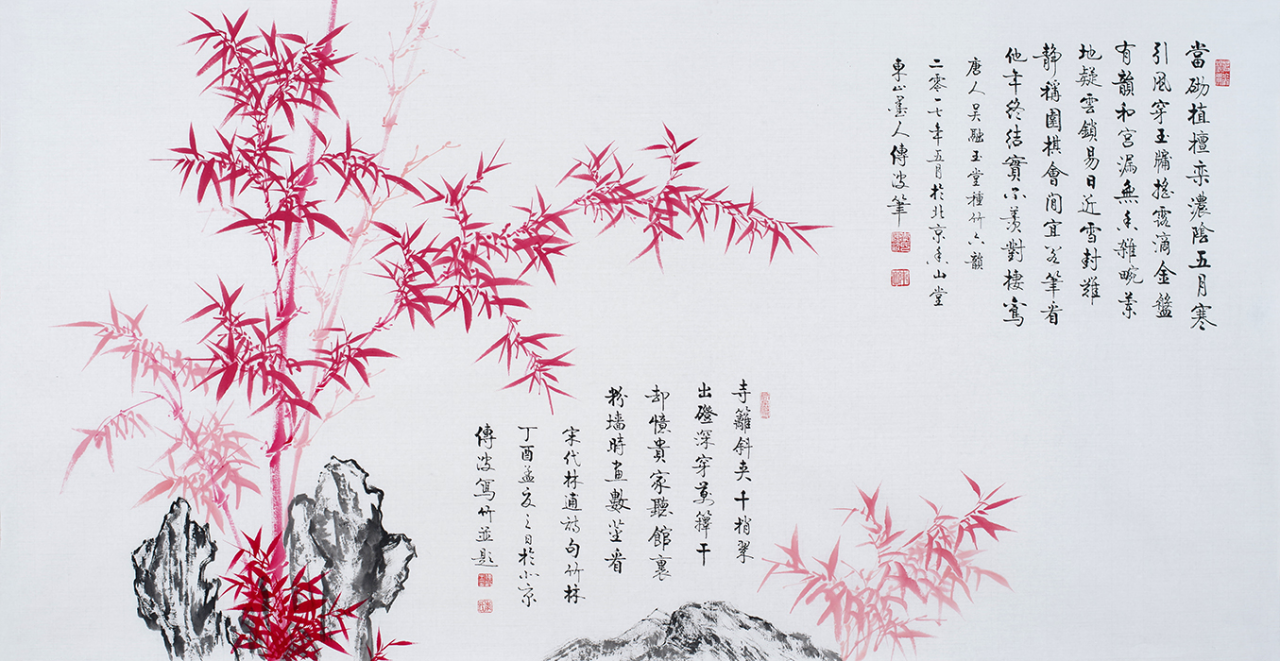 當砌植檀栾濃陰五月寒
引風穿玉牖搖露滴金盤
有韻和宮漏無香雜畹蘭
地疑雲鎖易日近雪封難
静稱圍棋會閒宜閣筆看
他年終結實不羨對棲鸞
唐人吴融玉堂種竹六韻
二零一七年五月於北京香山堂
東山墨人傅波筆
寺籬斜夾千梢翠
出磴深穿萬籜干
却憶貴家聽館裏
粉墻時畫數莖看
宋代林逋詩句竹林
丁酉孟夏之日於北京
傅波寫竹並題